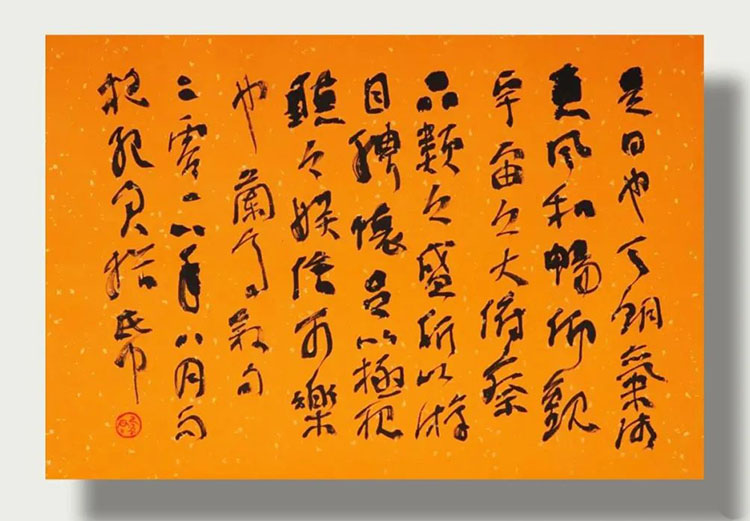 是日也天朗氣清
惠風和暢仰觀
宇宙之大俯察
品類之盛所以游
目騁懷足以極視
聽之娛信可樂
也蘭亭敘句
二零一八年八月